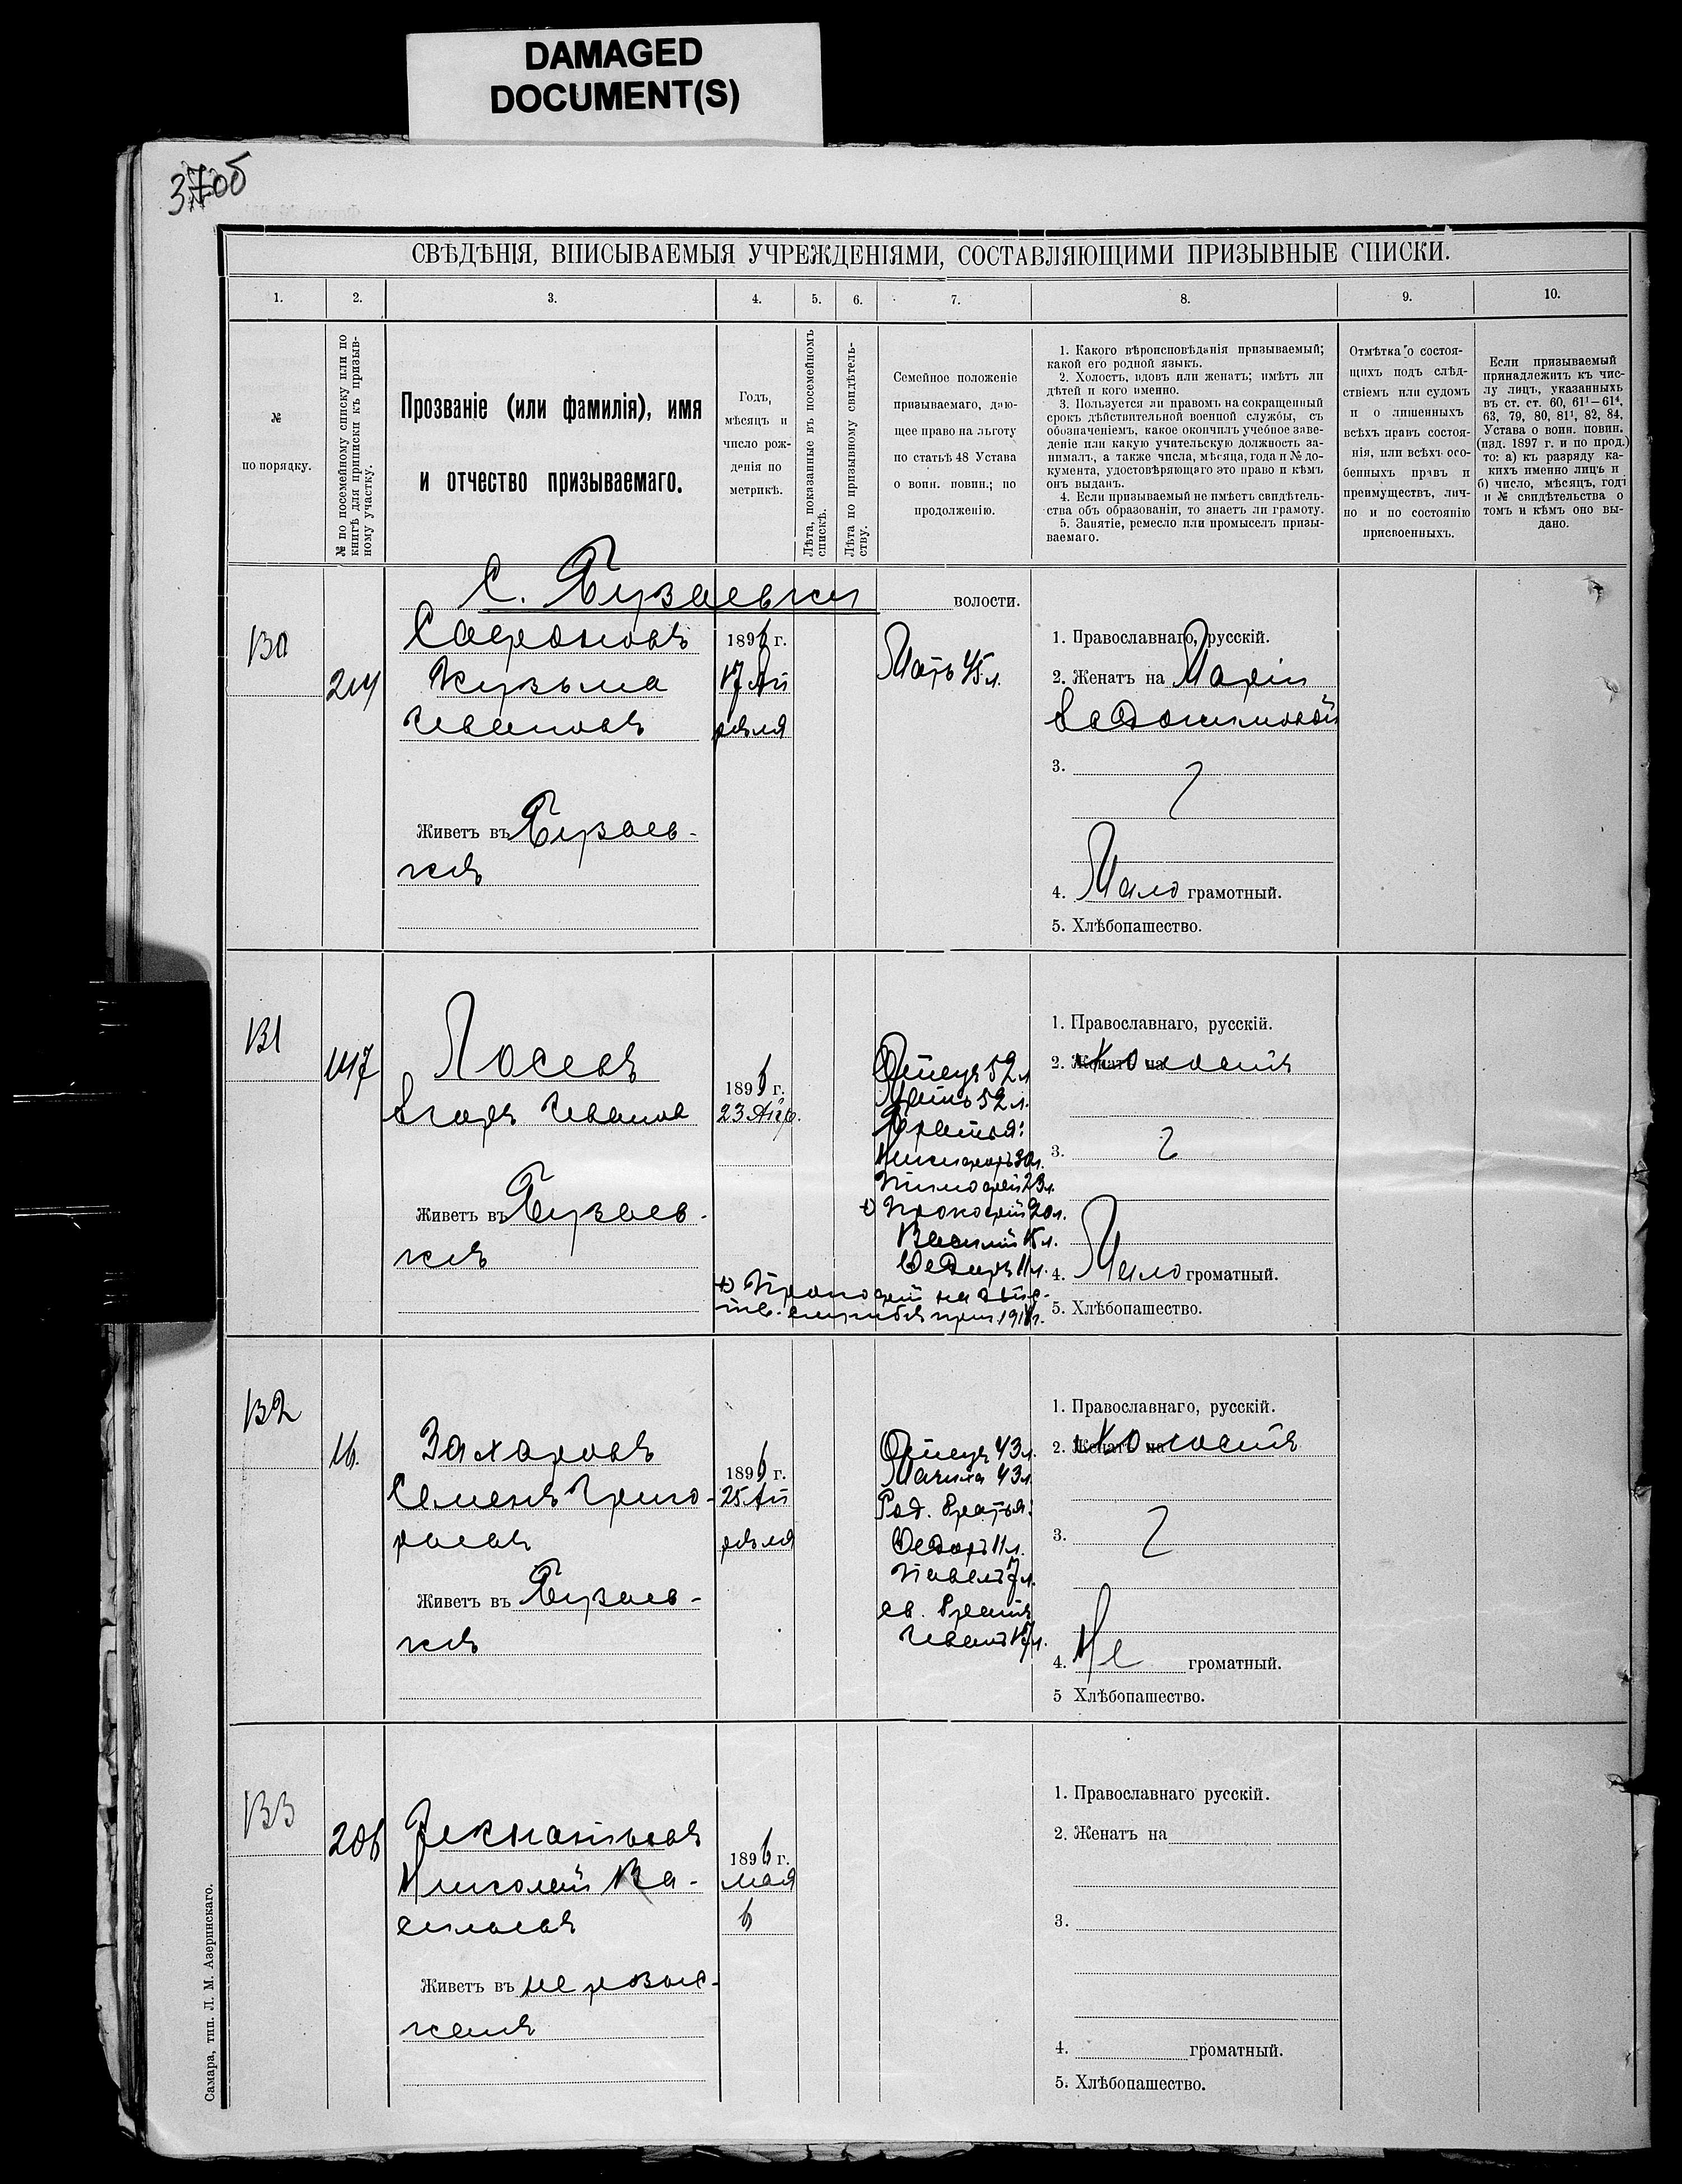 DAMAGED
DOCUMENT(S)
37об
СВѢДѢНІЯ, ВПИСЫВАЕМЫЯ УЧРЕЖДЕНІЯМИ, СОСТАВЛЯЮЩИМИ ПРИЗЫВНЫЕ СПИСКИ.
1. 2. 3. 4. 5. 6. 7. 8. 9. 10.
№
по порядку.
№ по посемейному списку или по
книгѣ для приписки къ призыв-
ному участку.
Прозваніе (или фамилія), имя
и отчество призываемаго.
Годъ,
мѣсяцъ и
число рож-
денія по
метрикѣ.
Лѣта, показанные въ посемейномъ
спискѣ.
Лѣта по призывному свидѣтель-
ству.
Семейное положеніе
призываемаго, даю-
щее право на льготу
по статьѣ 48 Устава
о воин. повин.; по
продолженію.
1. Какого вѣроисповѣданія призываемый;
какой его родной языкъ.
2. Холостъ, вдовъ или женатъ; имѣтъ ли
дѣтей и кого именно.
3. Пользуется ли правомъ на сокращенный
срокъ дѣйствительной военной службы, съ
обозначеніемъ, какое окончилъ учебное заве-
деніе или какую учительскую должность за-
нималъ, а также числа, мѣсяца, года и № до-
кумента, удостовѣряющаго это право и кѣмъ
онъ выданъ.
4. Если призываемый не имѣетъ свидѣтель-
ства объ образованіи, то знаетъ ли грамоту.
5. Занятіе, ремесло или промыселъ призы-
ваемаго.
Отмѣтка о состоя-
щихъ подъ слѣд-
ствіемъ или судомъ
и о лишенныхъ
всѣхъ правъ состоя-
нія, или всѣхъ осо-
бенныхъ правъ и
преимуществъ, лич-
но и по состоянію
присвоенныхъ.
Если призываемый
принадлежитъ къ чис-
лу лицъ, указанныхъ
въ ст. ст. 60, 61¹—61⁴,
63, 79, 80, 81¹, 82, 84,
Устава о воин. повин.
(изд. 1897 г. и по прод.)
то: а) къ разряду ка-
кихъ именно лицъ и
б) число, мѣсяцъ, годъ
и № свидѣтельства о
томъ и кѣмъ оно вы-
дано.
С. Бузаевки волости.
130
214
Сафроновъ
Кузьма
Ивановъ
Живетъ въ Бузаев-
кѣ
1896 г.
17 Ап
рѣля
Мать 45 л.
1. Православнаго, русскій.
2. Женатъ на Маріи
Евдокимовой
3.
4. Мало грамотный.
5. Хлѣбопашество.
131
147
Лосевъ
Егоръ Иванов
Живетъ въ Бузаев-
кѣ
1896 г.
23 Апр.
Отецъ 52 л
Мать 52 л.
Братья:
Никифоръ 30 л.
Тимофей 23 л.
×) Прокофій 20 л.
Василій 15 л.
Федоръ 11 л.
×) Прокофій на дѣйс-
тв. службѣ приз. г.
1. Православнаго, русскій.
2. Женатъ на Холостъ
3.
4. Мало громатный.
5. Хлѣбопашество.
132
16.
Захаровъ
Семенъ Григо-
рьевъ
Живетъ въ Бузаев-
кѣ
1896 г.
25 Ап
рѣля
Отецъ 43 л.
Мачиха 43 л
Род. братья:
Федоръ 11 л.
Павелъ 7 л.
св. братъ
Иванъ 17 л.
1. Православнаго, русскій.
2. Женатъ на Холостъ
3.
4. Не громатный.
5 Хлѣбопашество.
133
206
Игнатьевъ
Николай Ва-
сильевъ
Живетъ въ не розыс-
канъ
1896 г.
мая
6
1. Православнаго русскій.
2. Женатъ на
3.
4. громатный.
5. Хлѣбопашество.
Самара, тип. Л. М. Азеринскаго.